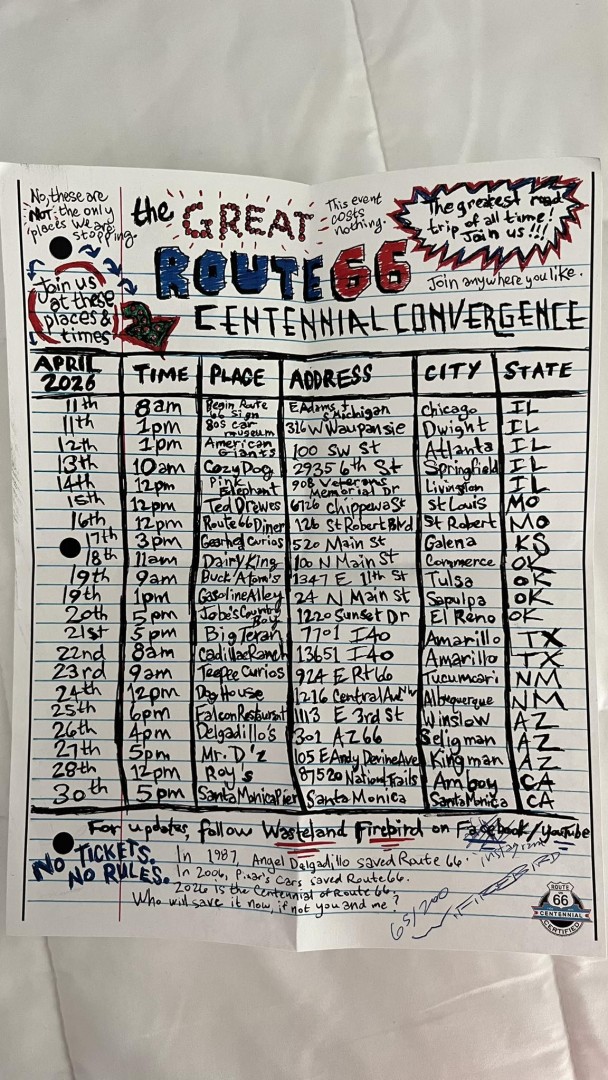 No, these are
NOT the only
places we are
stopping.
the GREAT
This event
costs
nothing.
The greatest road
trip of all time!
Join us!!!
ROUTE 66
Join anywhere you like.
Join us
at these
places &
times
CENTENNIAL CONVERGENCE
APRIL 2026 TIME PLACE ADDRESS CITY STATE
11th 8am Begin Route 66 sign E Adams + S Michigan Chicago IL
11th 1pm 80s car museum 316 W Waupansie Dwight IL
12th 1pm American Giants 100 SW St Atlanta IL
13th 10am Cozy Dog 2935 6th St Springfield IL
14th 12pm Pink Elephant 908 Veterans Memorial Dr Livingston IL
15th 12pm Ted Drewes 6726 Chippewa St St Louis MO
16th 12pm Route 66 Diner 126 St Robert Blvd St Robert MO
17th 3pm Gearhead Curios 520 Main St Galena KS
18th 11am Dairy King 100 N Main St Commerce OK
19th 9am Buck Atom's 1347 E 11th St Tulsa OK
19th 1pm Gasoline Alley 24 N Main St Sapulpa OK
20th 5pm Jobe's Country Boy 1220 Sunset Dr El Reno OK
21st 5pm Big Texan 7701 I40 Amarillo TX
22nd 8am Cadillac Ranch 13651 I40 Amarillo TX
23rd 9am Teepee Curios 924 E Rt 66 Tucumcari NM
24th 12pm Dog House 1216 Central Ave Albuquerque NM
25th 6pm Falcon Restaurant 1113 E 3rd St Winslow AZ
26th 4pm Delgadillo's 301 AZ 66 Seligman AZ
27th 5pm Mr. D'z 105 E Andy Devine Ave Kingman AZ
28th 12pm Roy's 87520 National Trails Amboy CA
30th 5pm Santa Monica Pier Santa Monica Santa Monica CA
For updates, follow Wasteland Firebird on Facebook/youtube
instagram
NO TICKETS.
NO RULES.
In 1987, Angel Delgadillo saved Route 66.
In 2006, Pixar's Cars saved Route 66.
2026 is the Centennial of Route 66.
Who will save it now, if not you and me?
65/200
FIREBIRD
ROUTE
66
CENTENNIAL
CERTIFIED